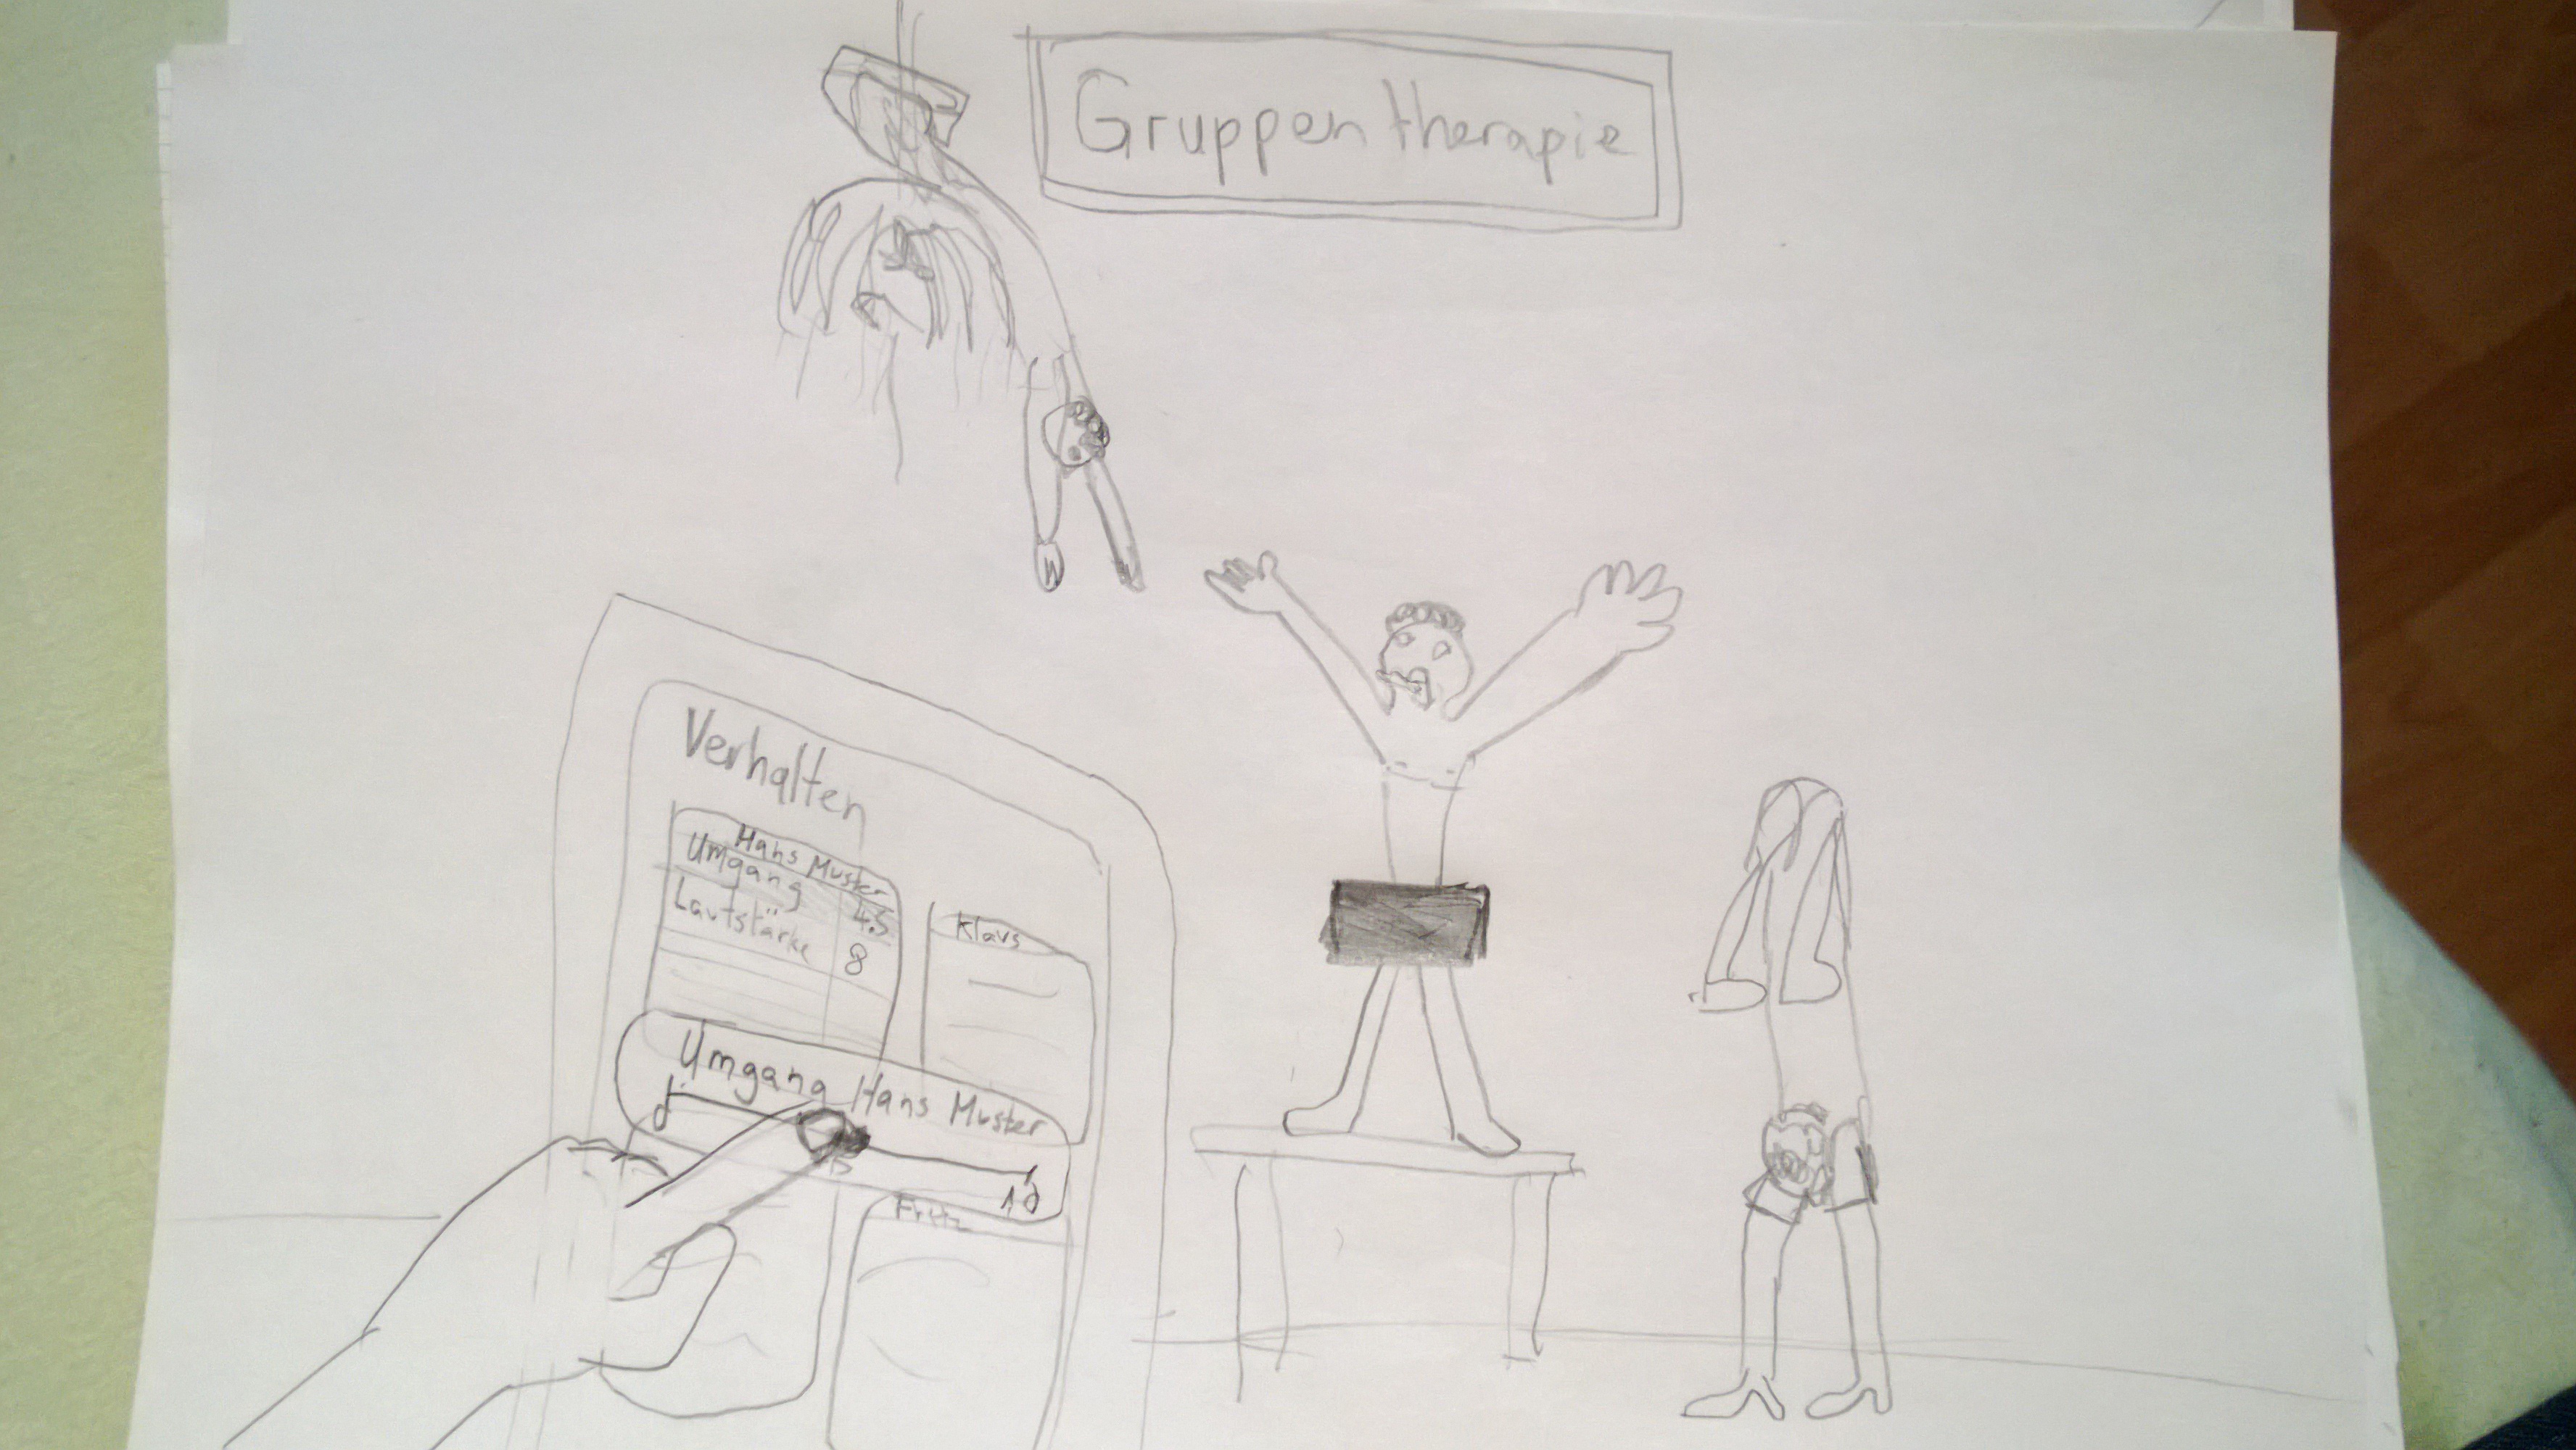 Gruppentherapie
Verhalten
Hans Muster
Umgang 4.5
Lautstärke 8
Klaus
Umgang Hans Muster
0
10
Fritz